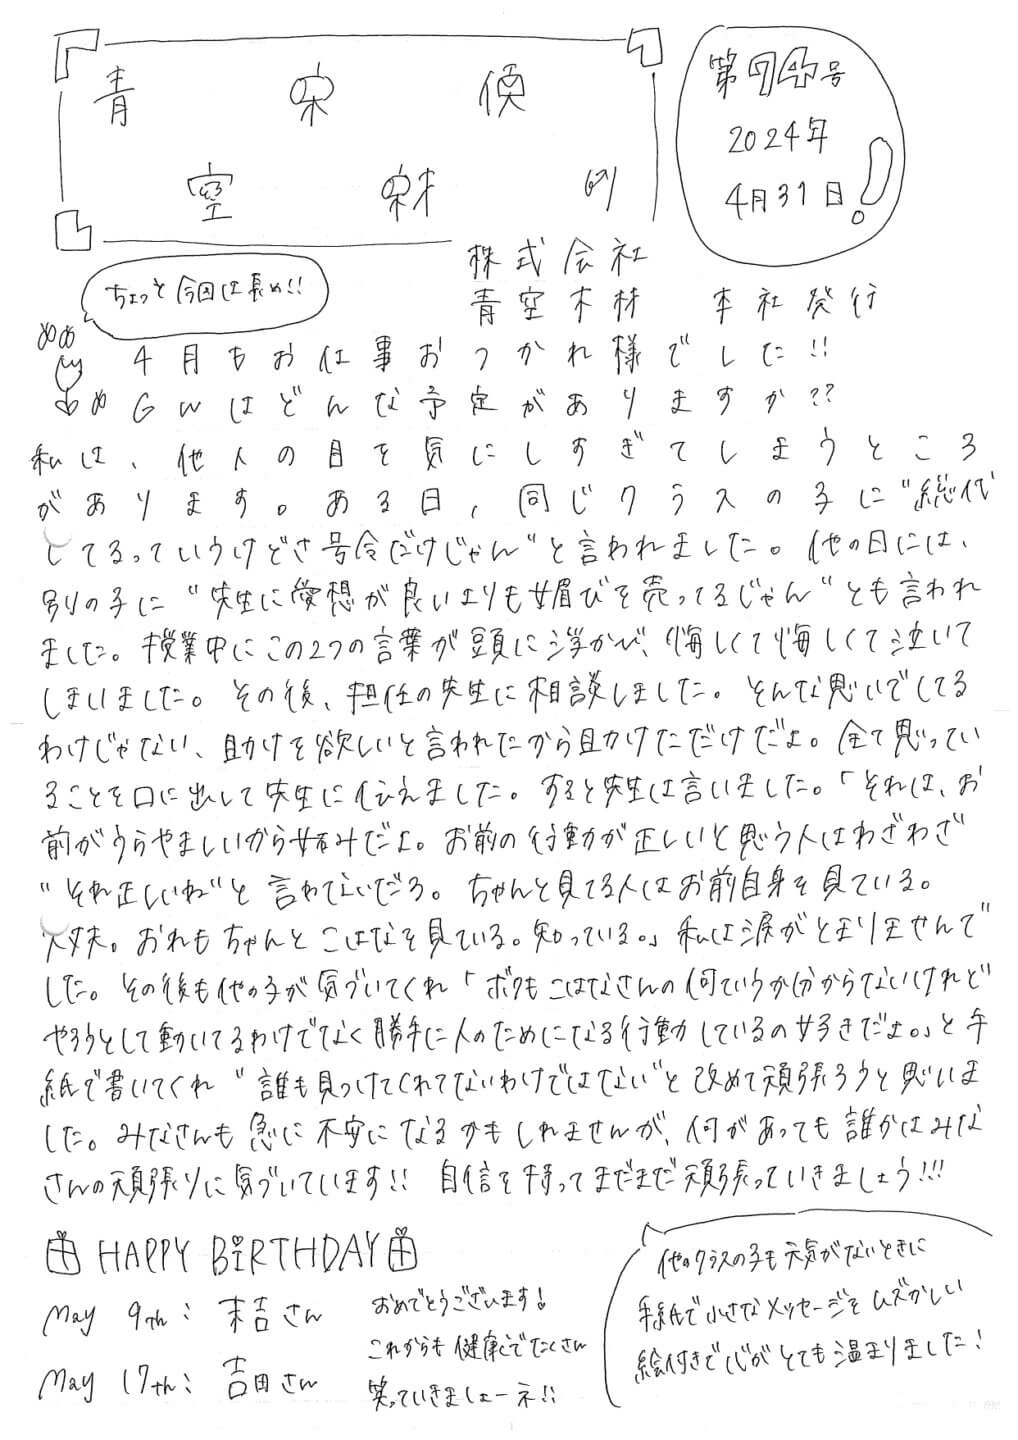 青空
第74号
2024年
4月31日!
株式会社
青空木材 本社発行
ちょっと今回は長め!!
4月もお仕事おつかれ様でした!!
GWはどんな予定がありますか??
私は、他人の目を気にしすぎてしまうところ
があります。ある日、同じクラスの子に"総代
してるっていうけどさ号令だけじゃん"と言われました。他の日には、
別の子に"先生に愛想が良いよりも媚びを売ってるじゃん"とも言われ
ました。授業中にこの2つの言葉が頭に浮かび、悔しくて悔しくて泣いて
しまいました。その後、担任の先生に相談しました。そんな思いでしてる
わけじゃない、助けを欲しいと言われたから助けただけだよ。全て思ってい
ることを口に出して先生に伝えました。すると先生は言いました。「それは、お
前がうらやましいから妬みだよ。お前の行動が正しいと思う人はわざわざ
"それ正しいね"と言わないだろ。ちゃんと見てる人はお前自身を見ている。
大丈夫。おれもちゃんとこはなを見ている。知っている。」私は涙がとまりませんで
した。その後も他の子が気づいてくれ「ボクもこはなさんの何ていうか分からないけれど
やろうとして動いてるわけでなく勝手に人のためになる行動しているの好きだよ。」と手
紙で書いてくれ"誰も見つけてくれてないわけではない"と改めて頑張ろうと思いま
した。みなさんも急に不安になるかもしれませんが、何があっても誰かはみな
さんの頑張りに気づいています!! 自信を持ってまだまだ頑張っていきましょう!!!
HAPPY BiRTHDAY
May 9th: 末吉さん
May 17th: 吉田さん
おめでとうございます!
これからも健康でたくさん
笑っていきましょーネ!!
他のクラスの子も元気がないときに
手紙で小さなメッセージをムズかしい
絵付きで心がとても温まりました!